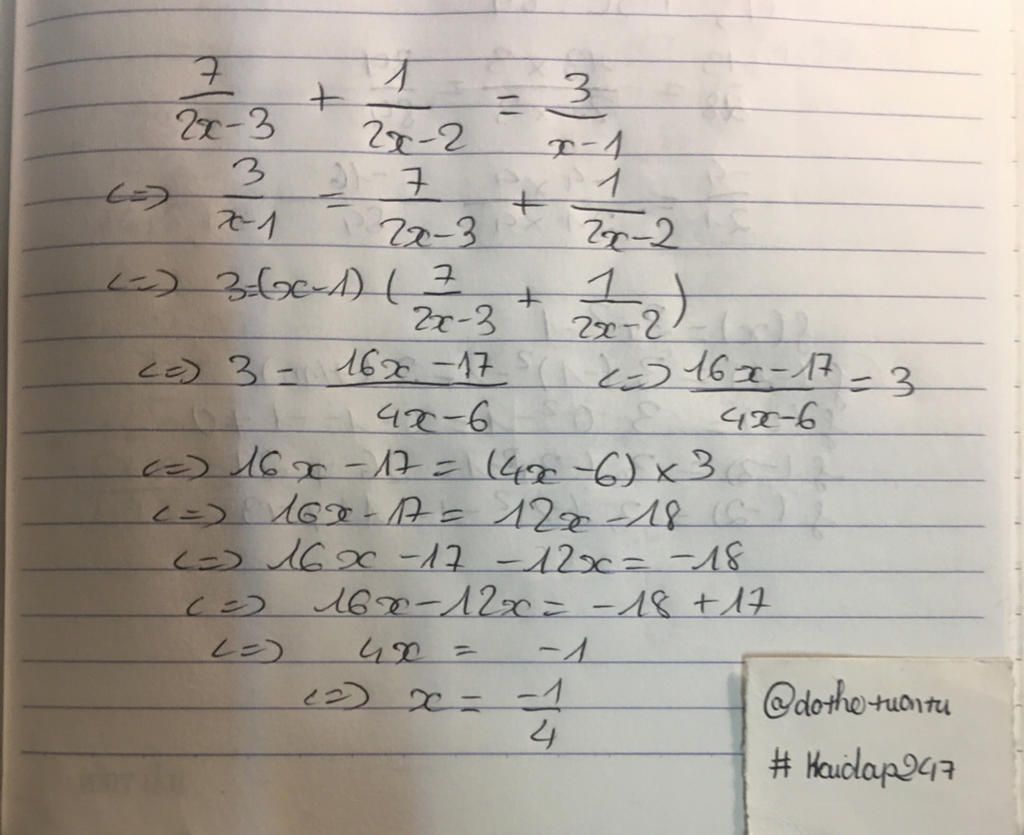 7/(2x-3) + 1/(2x-2) = 3/(x-1)
<=> 3/(x-1) = 7/(2x-3) + 1/(2x-2)
<=> 3=(x-1) ( 7/(2x-3) + 1/(2x-2) )
<=> 3 = (16x-17)/(4x-6) <=> (16x-17)/(4x-6) = 3
<=> 16x - 17 = (4x-6) × 3
<=> 16x - 17 = 12x - 18
<=> 16x - 17 - 12x = -18
<=> 16x - 12x = -18 + 17
<=> 4x = -1
<=> x = -1/4
@dothetuantu
# Hoidap247